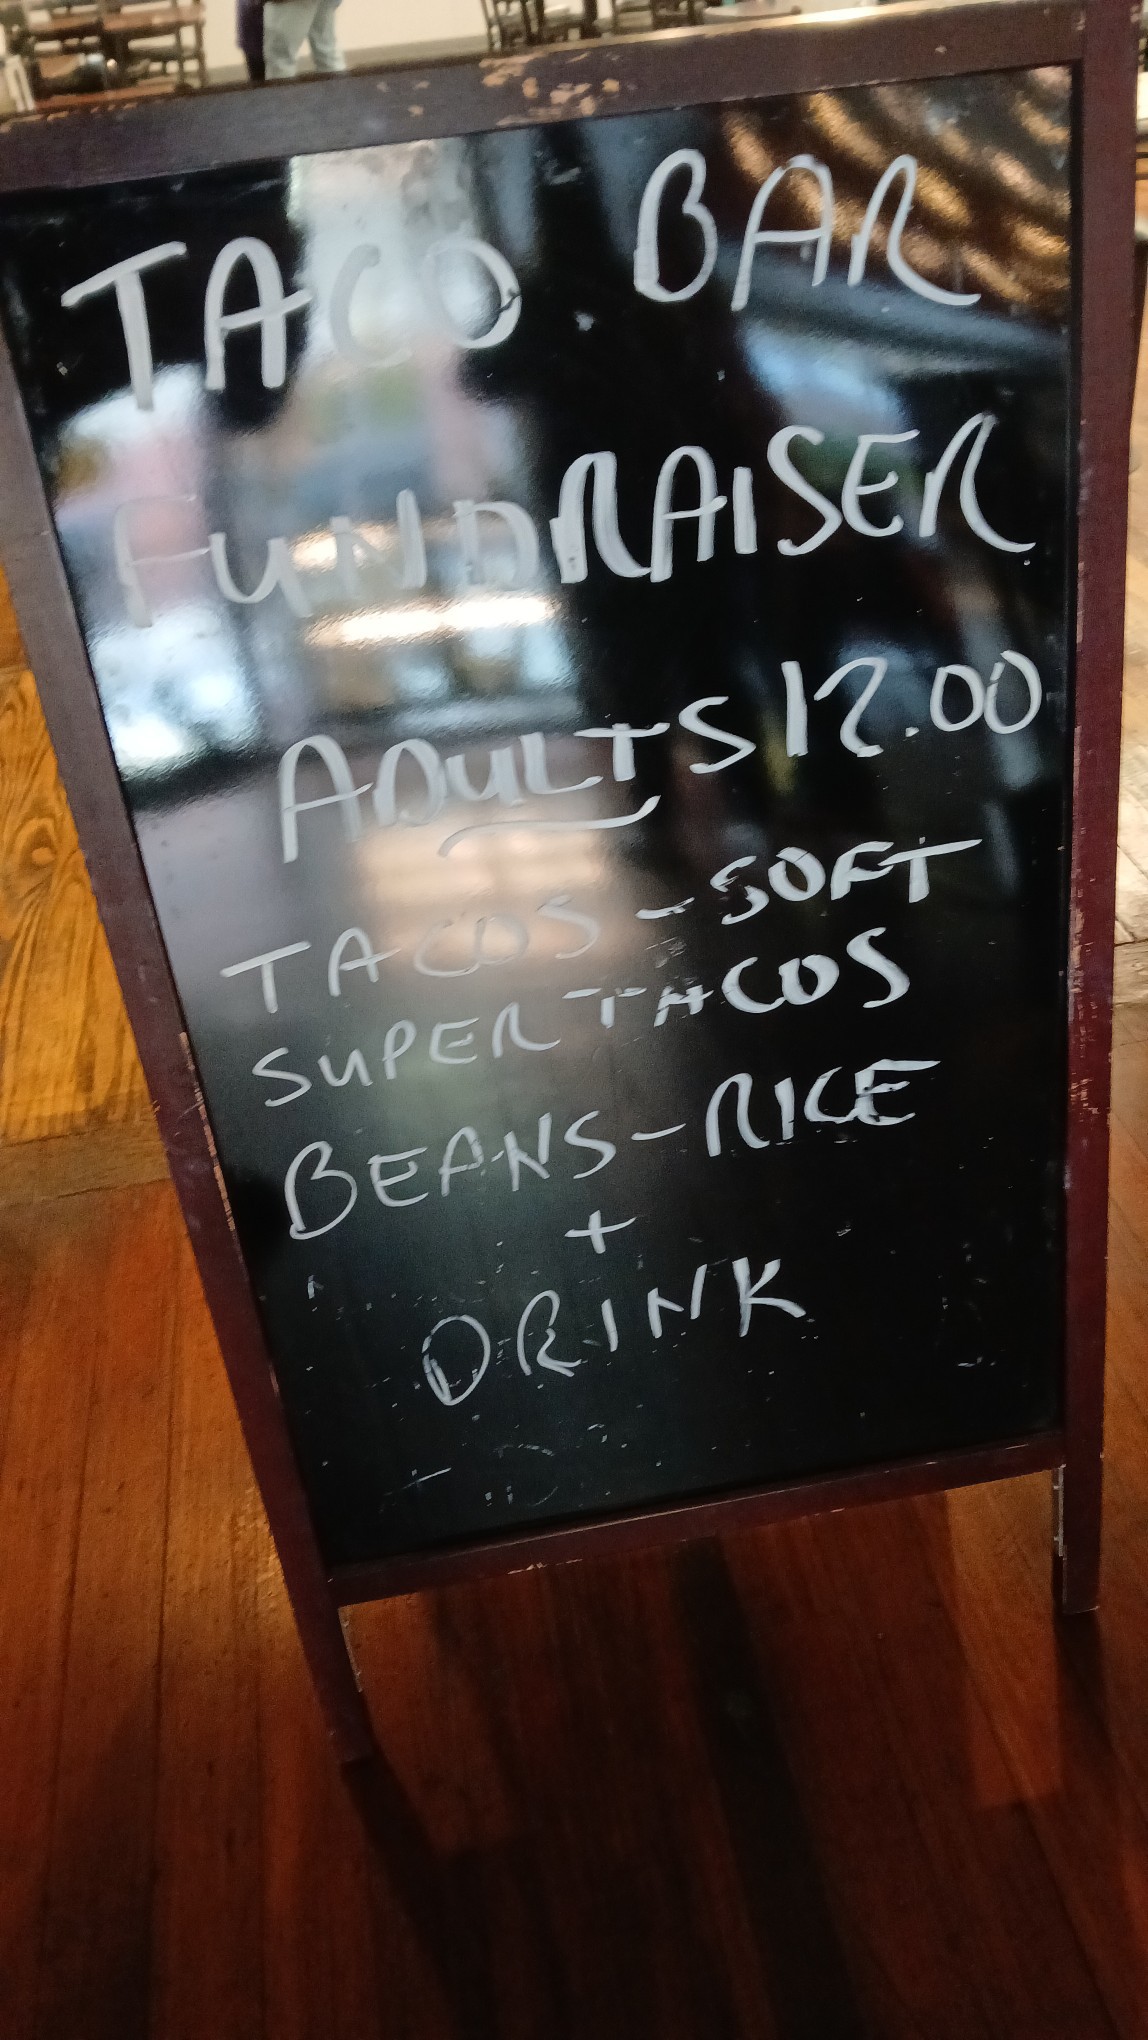 TACO BAR
FUNDRAISER
ADULTS 12.00
TACOS - SOFT
SUPER TACOS
BEANS - RICE
+
DRINK